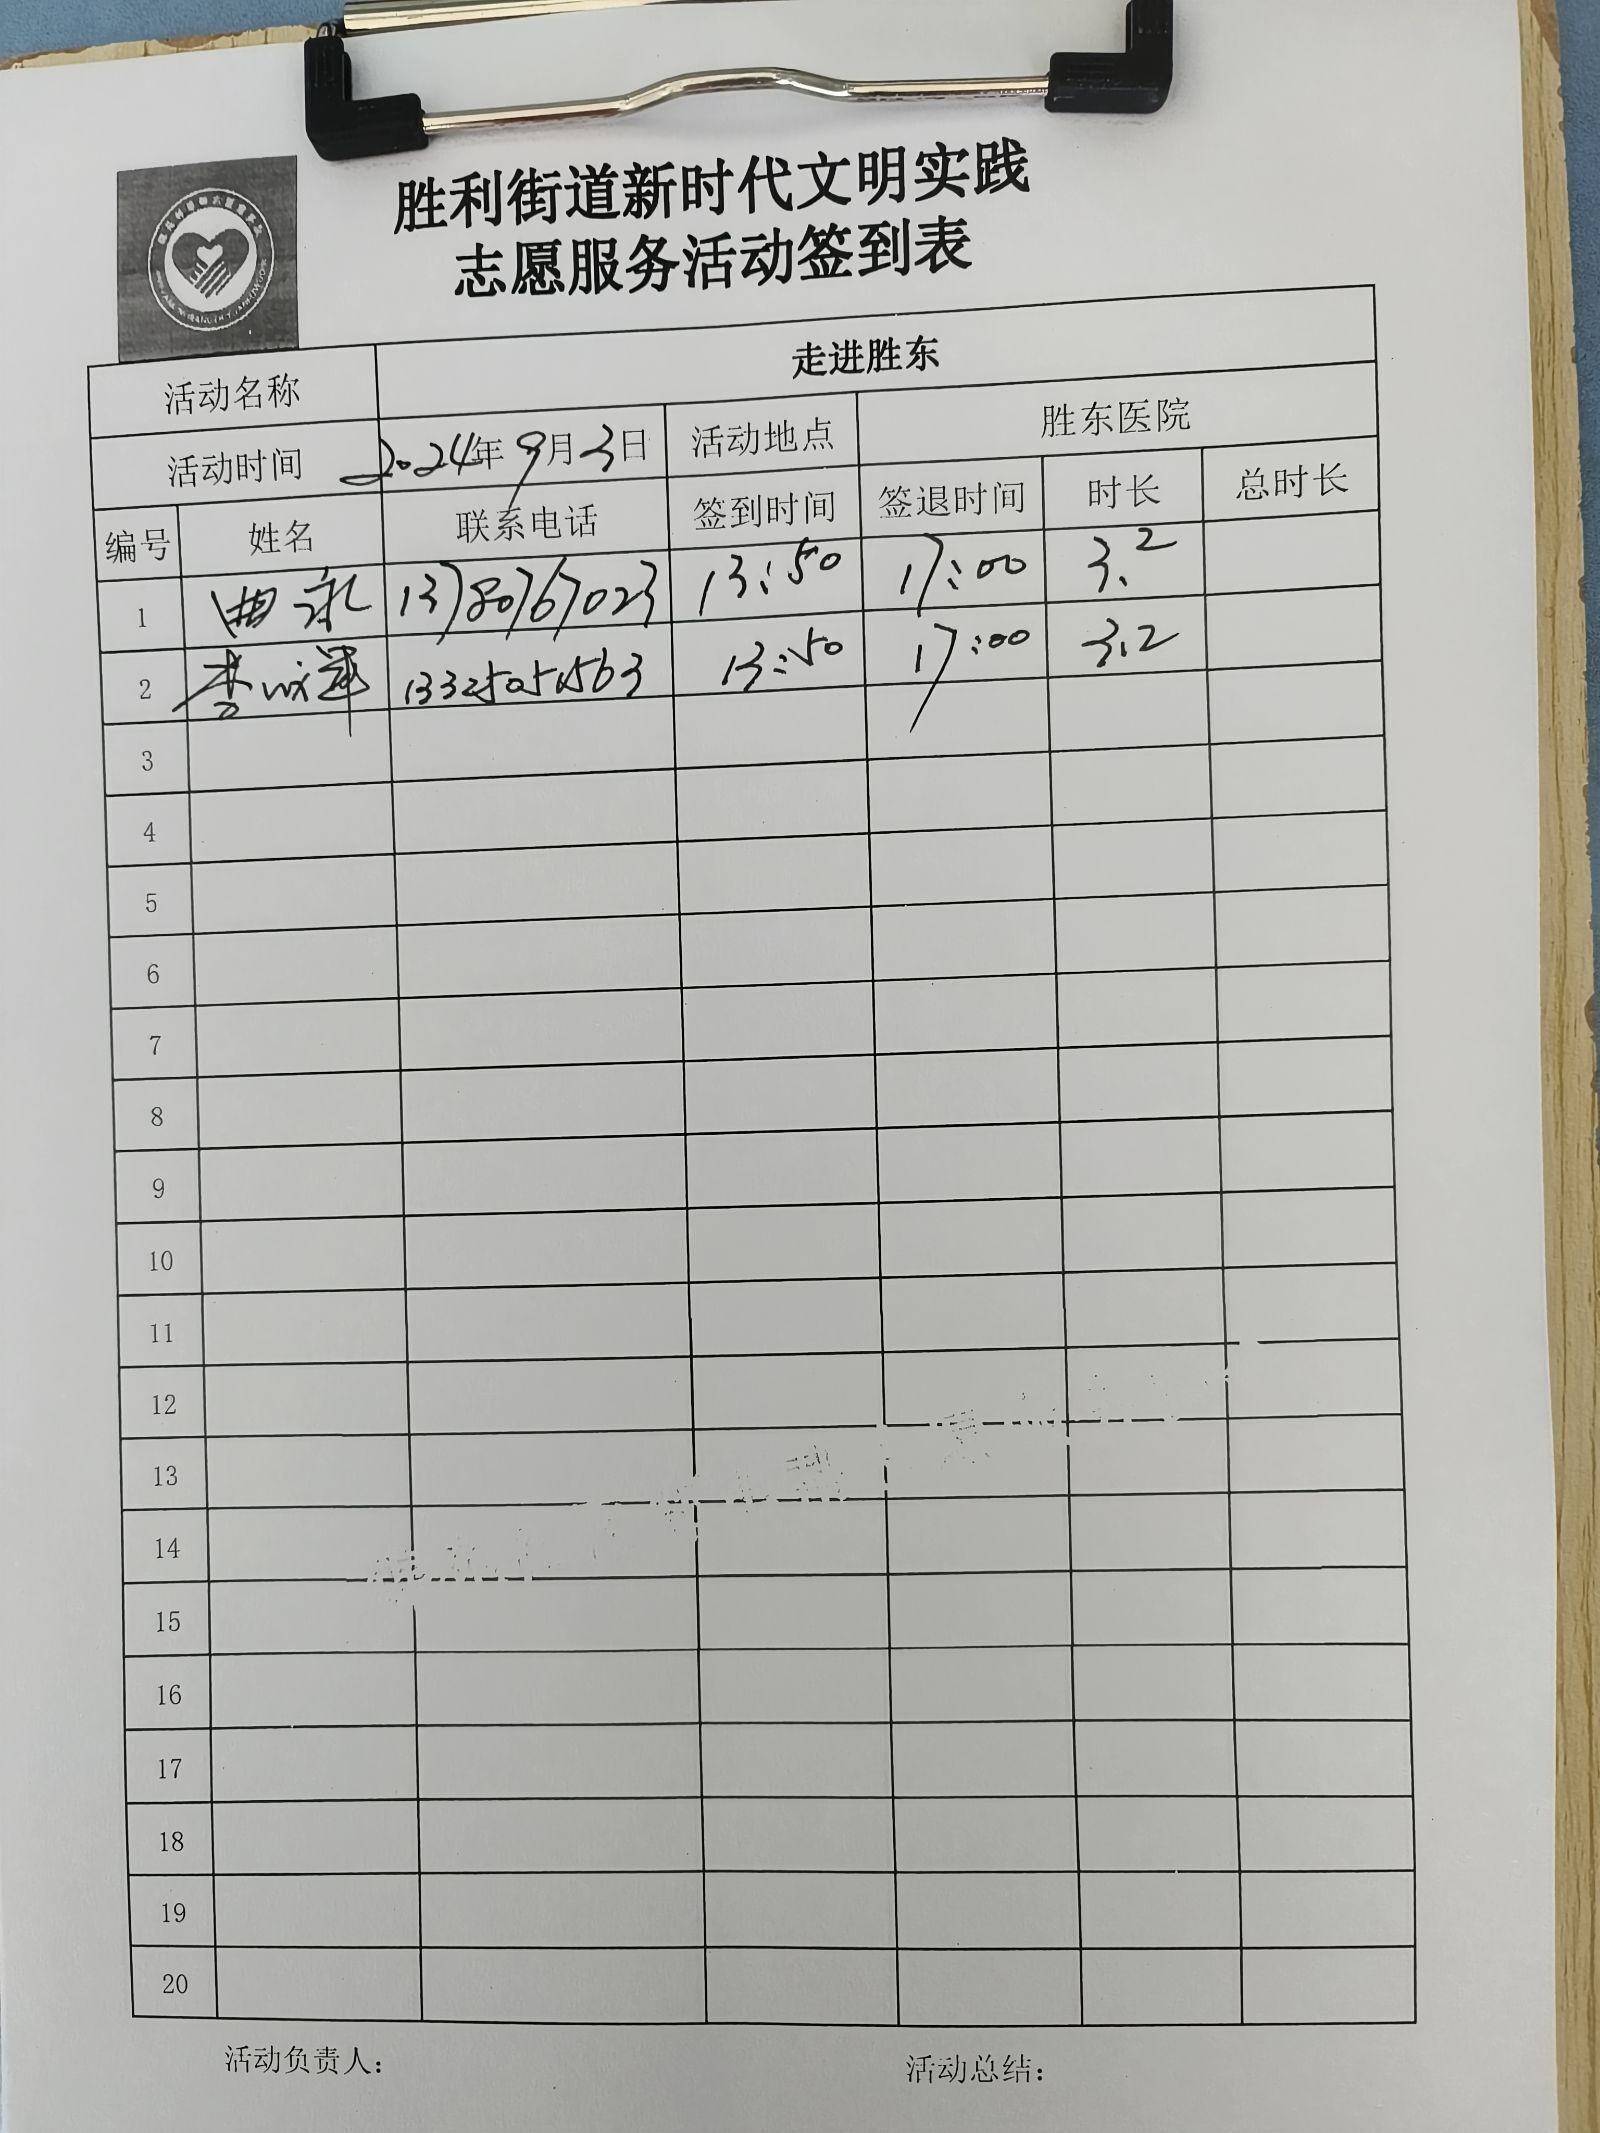 胜利街道新时代文明实践
志愿服务活动签到表
活动名称 走进胜东
活动时间 2024年9月3日 活动地点 胜东医院
编号 姓名 联系电话 签到时间 签退时间 时长 总时长
1 曲永 13780767023 13:50 17:00 3.2
2 李成军 13325051563 13:50 17:00 3.2
3
4
5
6
7
8
9
10
11
12
13
14
15
16
17
18
19
20
活动负责人： 活动总结：